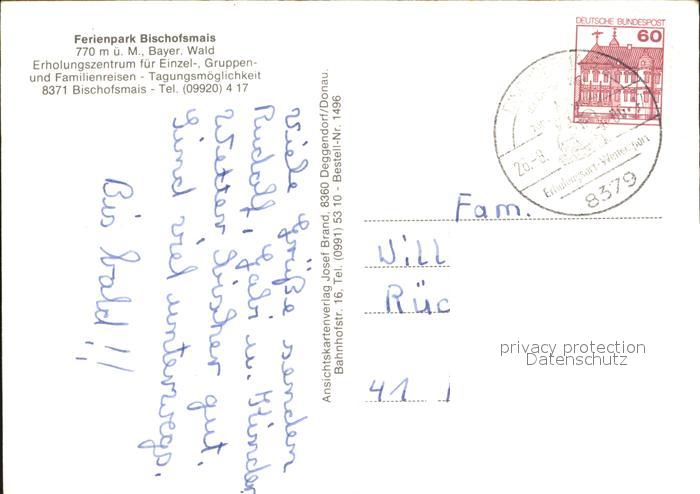 Ferienpark Bischofsmais
770 m ü. M., Bayer. Wald
Erholungszentrum für Einzel-, Gruppen-
und Familienreisen - Tagungsmöglichkeit
8371 Bischofsmais - Tel. (09920) 4 17
Viele Grüße senden
Rudolf, Gabi u. Kinder
Wetter bisher gut.
Sind viel unterwegs.
Bis bald!!
Ansichtskartenverlag Josef Brand, 8360 Deggendorf/Donau.
Bahnhofstr. 16, Tel. (0991) 53 10 - Bestell-Nr. 1496
DEUTSCHE BUNDESPOST
60
26.-8.
Erholungsort-Wintersport
8379
Fam.
Will
Rüc
41
privacy protection
Datenschutz